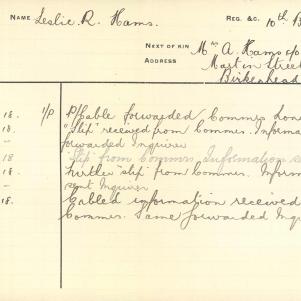 NAME Leslie R. Hams. REG. &C. 10th B
NEXT OF KIN Mrs A. Hams c/o
ADDRESS Martin Street
Birkenhead
18. 1/P P/Cable forwarded Commrs Lon
18. "Slip" received from Commr. Informa
- forwarded Inquirer
18 Slip from Commrs. Information re
18. Further "slip" from Commr. Inform
- sent Inquirer
18. Cabled information received
Commr. Same forwarded Inqu